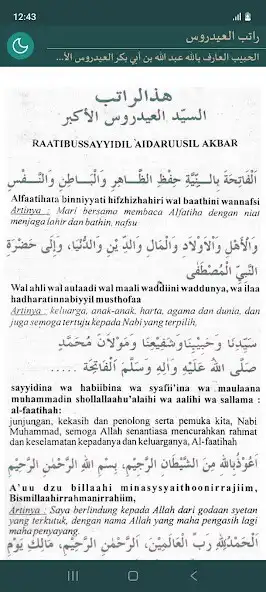 12:43
راتب العيدروس
الحبيب العارف بالله عبد الله بن أبي بكر العيدروس الأ...
هذالراتب
السيّد العيدروس الأكبر
RAATIBUSSAYYIDIL 'AIDARUUSIL AKBAR
اَلْفَاتِحَةَ بِالنِّيَّةِ حِفْظِ الظَّاهِرِ وَالْبَاطِنِ وَالنَّفْسِ
Alfaatihata binniyyati hifzhizhahiri wal baathini wannafsi
Artinya : Mari bersama membaca Alfatiha dengan niat
menjaga lahir dan bathin, nafsu
وَالْأَهْلِ وَالْاَوْلَادِ وَالْمَالِ وَالدِّيْنِ وَالدُّنْيَا، وَاِلَى حَضْرَةِ
النَّبِيِّ الْمُصْطَفَى
Wal ahli wal aulaadi wal maali waddiini waddunya, wa ilaa
hadharatinnabiyyil musthofaa
Artinya : keluarga, anak-anak, harta, agama dan dunia, dan
juga semoga tertuju kepada Nabi yang terpilih,
سَيِّدِنَا وَحَبِيْبِنَا وَشَفِيْعِنَا وَمَوْلَانَا مُحَمَّدٍ
صَلَّى اللهُ عَلَيْهِ وَاٰلِهِ وَسَلَّمَ اَلْفَاتِحَةْ ...
sayyidina wa habiibina wa syafii'ina wa maulaana
muhammadin shollallaahu'alaihi wa aalihi wa sallama :
al-faatihah:
junjungan, kekasih dan penolong serta pemuka kita, Nabi
Muhammad, semoga Allah senantiasa mencurahkan rahmat
dan keselamatan kepadanya dan keluarganya, Al-faatihah
اَعُوْذُبِاللهِ مِنَ الشَّيْطَانِ الرَّجِيْمِ، بِسْمِ اللهِ الرَّحْمٰنِ الرَّحِيْمِ
A'uu dzu billaahi minasysyaithoonirrajiim,
Bismillaahirrahmanirrahiim,
Artinya : Saya berlindung kepada Allah dari godaan syetan
yang terkutuk, dengan nama Allah yang maha pengasih lagi
maha penyayang.
اَلْحَمْدُلِلّٰهِ رَبِّ الْعَالَمِيْنَ، اَلرَّحْمٰنِ الرَّحِيْمِ، مَالِكِ يَوْمِ